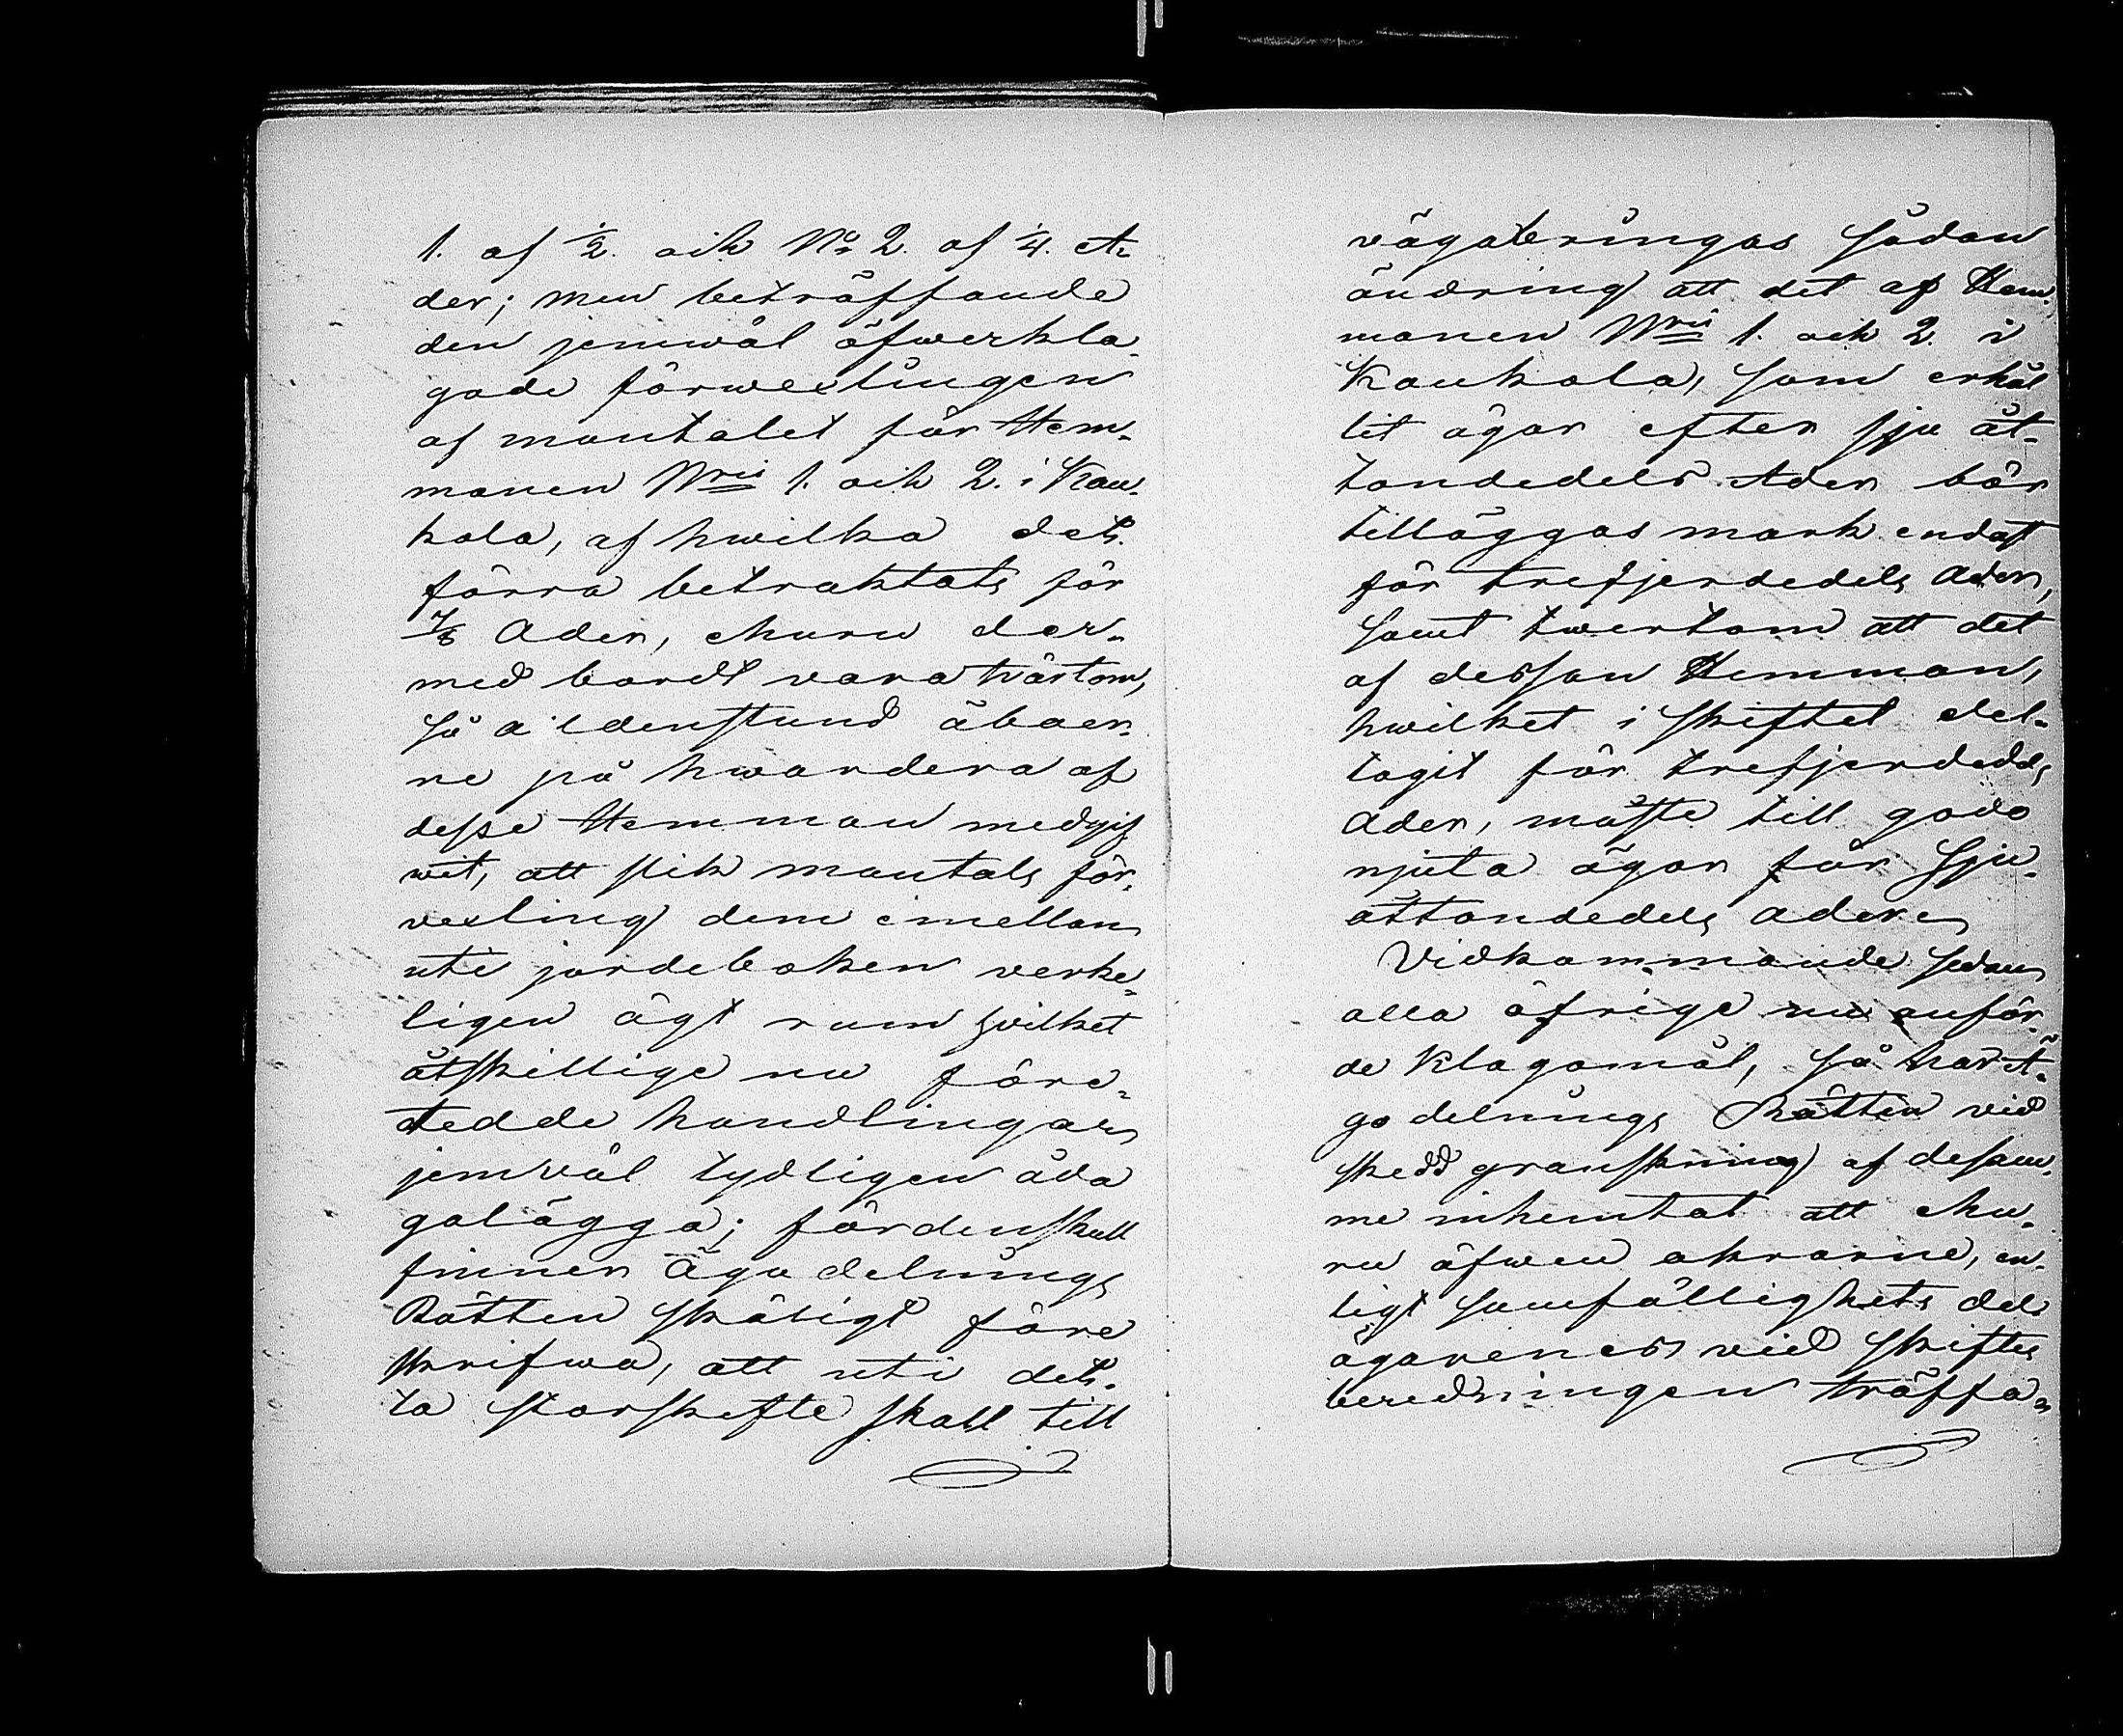 1. af 1/2. och No 2. af 1/4. A-
der; men beträffande
den jemwäl öfwerkla-
gade förwexlingen
af mantalet för Hem-
manen Nris 1. och 2. i Kau-
kola, af hwilka det
förra betraktats för
7/8 Ader, ehuru der-
med bordt vara tvärtom,
så a ldenstund åboer-
ne på hwardera af
desse Hemman medgif
wit, att slik mantals för-
vexling dem emellan
uti jordeboken verke-
ligen ägt rum hvilket
åtskillige nu före-
tedde handlingar
jemväl tydligen åda
galägga; fördenskull
finner Ägodelnings
Rätten skäligt före
skrifwa, att uti det-
ta storskifte skall till
vägabringas sådan
ändring att det af Hem-
manen Nris 1. och 2. i
Kaukola, som erhål
lit ägor efter sju åt-
tondedels Ader bör
tilläggas mark endast
för trefjerdedels Ader,
samt twertom att det
af dessan Hemman,
hwilket i skiftet del-
tagit för trefjerdedels
Ader, måste till godo
njuta ägor för sju-
åttondedels ader.
Vidkommande sedan
alla öfrige nu anför-
de Klagomål, så har Ä-
go delnings Rätten vid
skedd granskning af desam-
me inhemtat att ehu-
ru äfwen åkrarne, en-
ligt samfällighets del-
ägarenes vid skiftes
beredningen träffa-